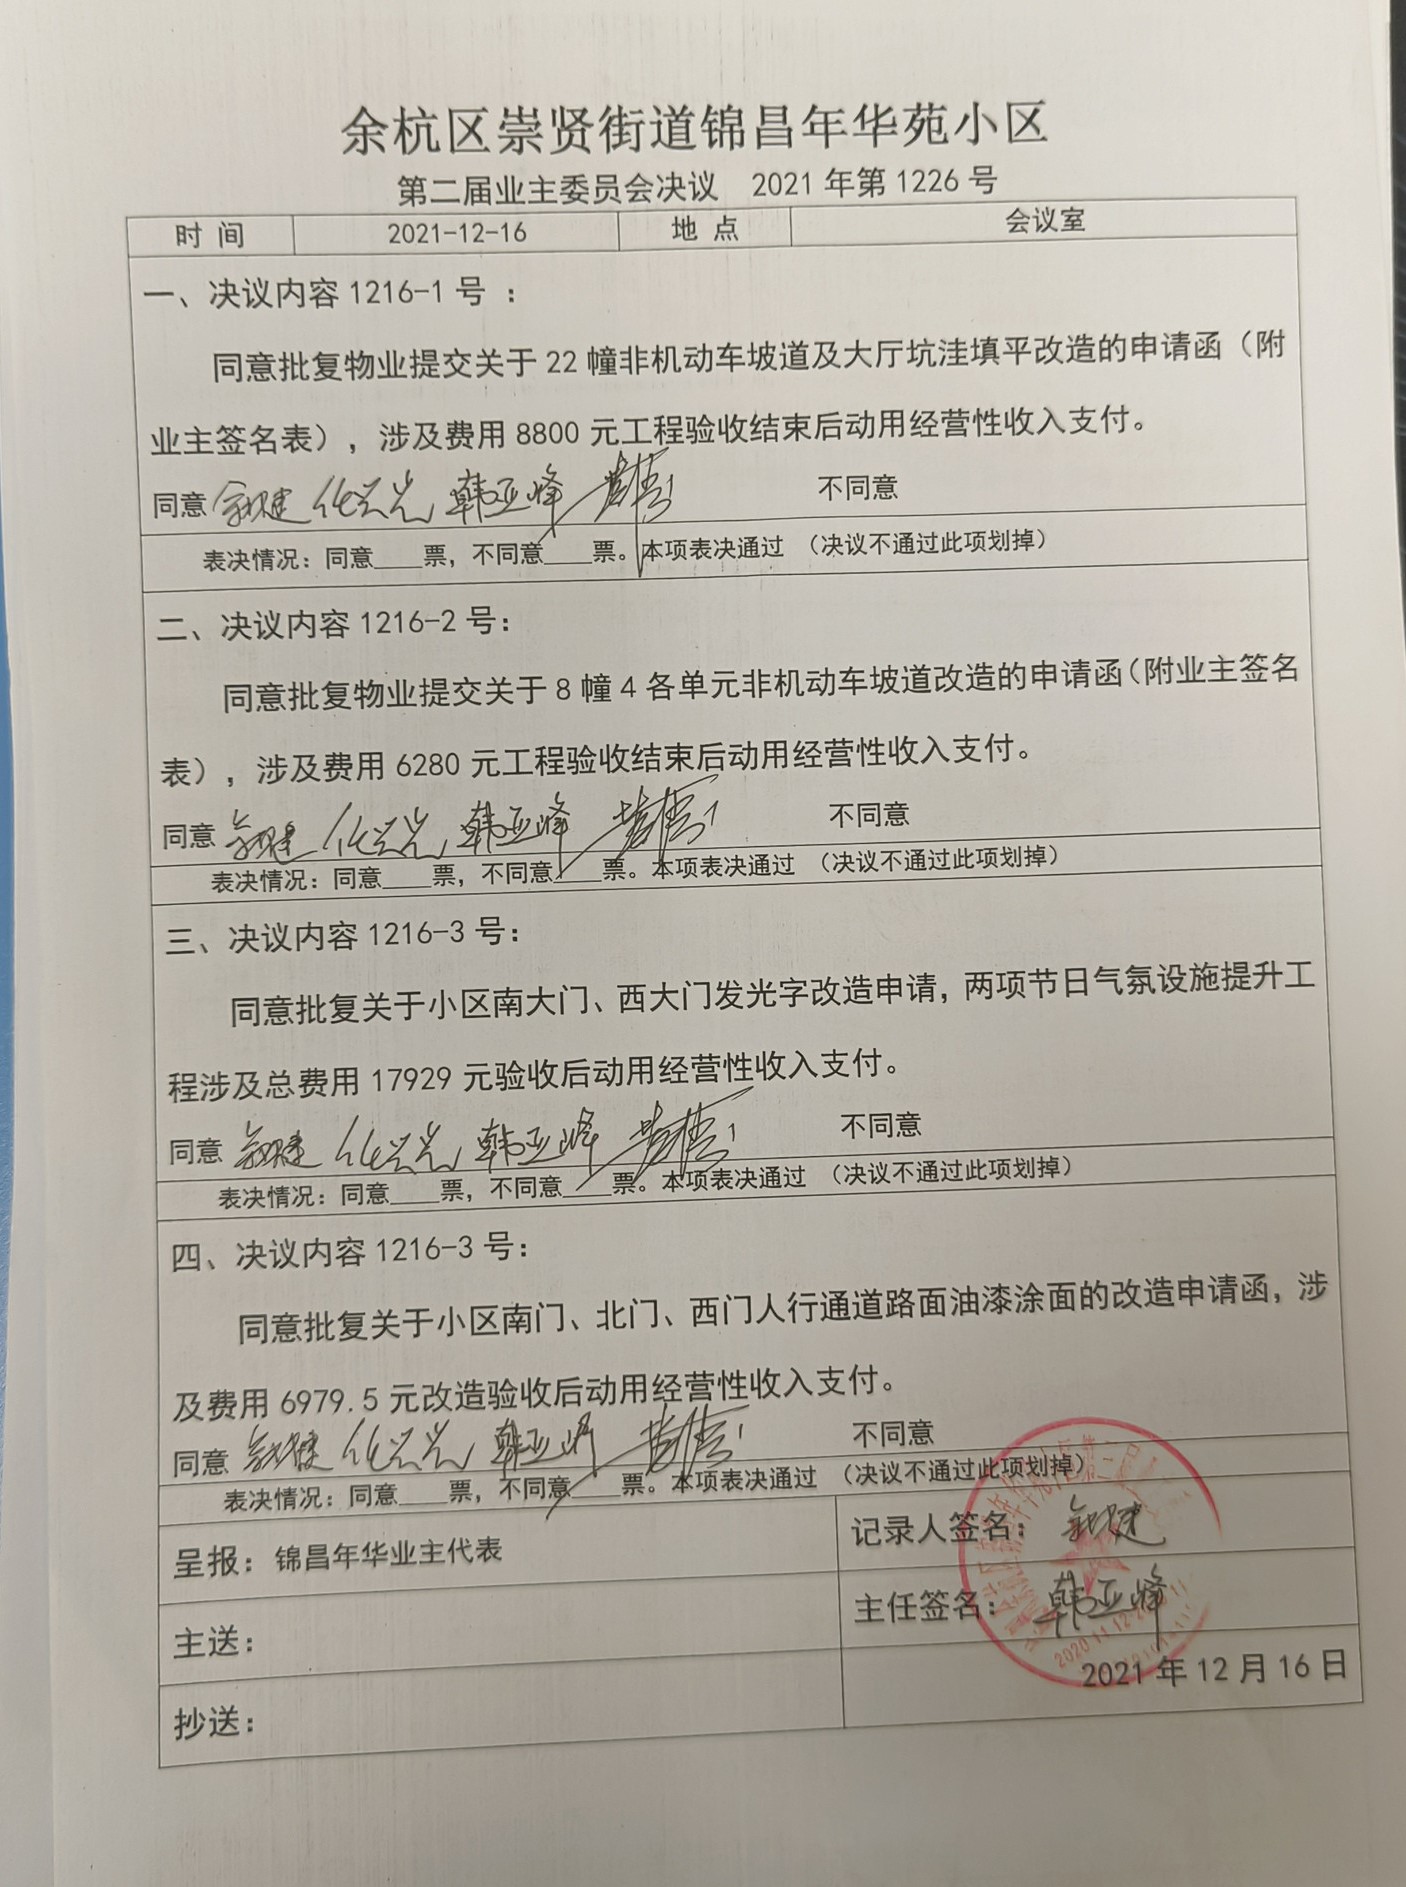 余杭区崇贤街道锦昌年华苑小区
第二届业主委员会决议 2021年第1226号
时 间 2021-12-16 地 点 会议室
一、决议内容1216-1号 ：
同意批复物业提交关于22幢非机动车坡道及大厅坑洼填平改造的申请函（附
业主签名表），涉及费用8800元工程验收结束后动用经营性收入支付。
同意 韩亚峰 不同意
表决情况：同意____票，不同意____票。本项表决通过 （决议不通过此项划掉）
二、决议内容1216-2号：
同意批复物业提交关于8幢4各单元非机动车坡道改造的申请函（附业主签名
表），涉及费用6280元工程验收结束后动用经营性收入支付。
同意 韩亚峰 不同意
表决情况：同意____票，不同意____票。本项表决通过 （决议不通过此项划掉）
三、决议内容1216-3号：
同意批复关于小区南大门、西大门发光字改造申请，两项节日气氛设施提升工
程涉及总费用17929元验收后动用经营性收入支付。
同意 韩亚峰 不同意
表决情况：同意____票，不同意____票。本项表决通过 （决议不通过此项划掉）
四、决议内容1216-3号：
同意批复关于小区南门、北门、西门人行通道路面油漆涂面的改造申请函，涉
及费用6979.5元改造验收后动用经营性收入支付。
同意 韩亚峰 不同意
表决情况：同意____票，不同意____票。本项表决通过 （决议不通过此项划掉）
呈报：锦昌年华业主代表
记录人签名：
主送：
主任签名：韩亚峰
抄送：
2021年12月16日